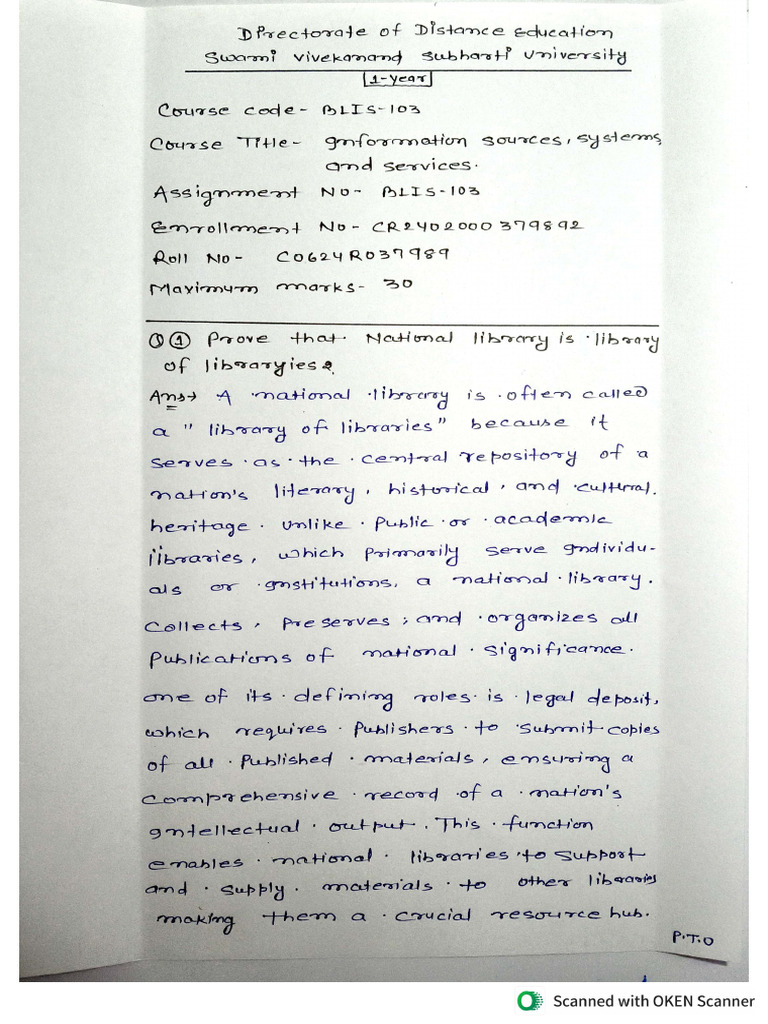 Directorate of Distance Education
Swami Vivekanand Subharti University
1-year
Course code- BLIS-103
Course Title- Information sources, systems,
and services.
Assignment No- BLIS-103
Enrollment No- CR2402000379892
Roll No- C0624R037989
Maximum marks- 30
Q ① Prove that National library is library
of libraryies?
Ans→ A national library is often called
a " library of libraries" because it
serves as the central repository of a
nation's literary, historical, and cultural.
heritage. Unlike public or academic
libraries, which primarily serve individu-
als or institutions, a national library.
Collects, preserves; and organizes all
Publications of national significance.
one of its defining roles is legal deposit,
which requires Publishers to submit copies
of all Published materials, ensuring a
comprehensive record of a nation's
intellectual output. This function
enables national libraries to support
and supply materials to other libraries
making them a crucial resource hub.
P.T.O
Scanned with OKEN Scanner